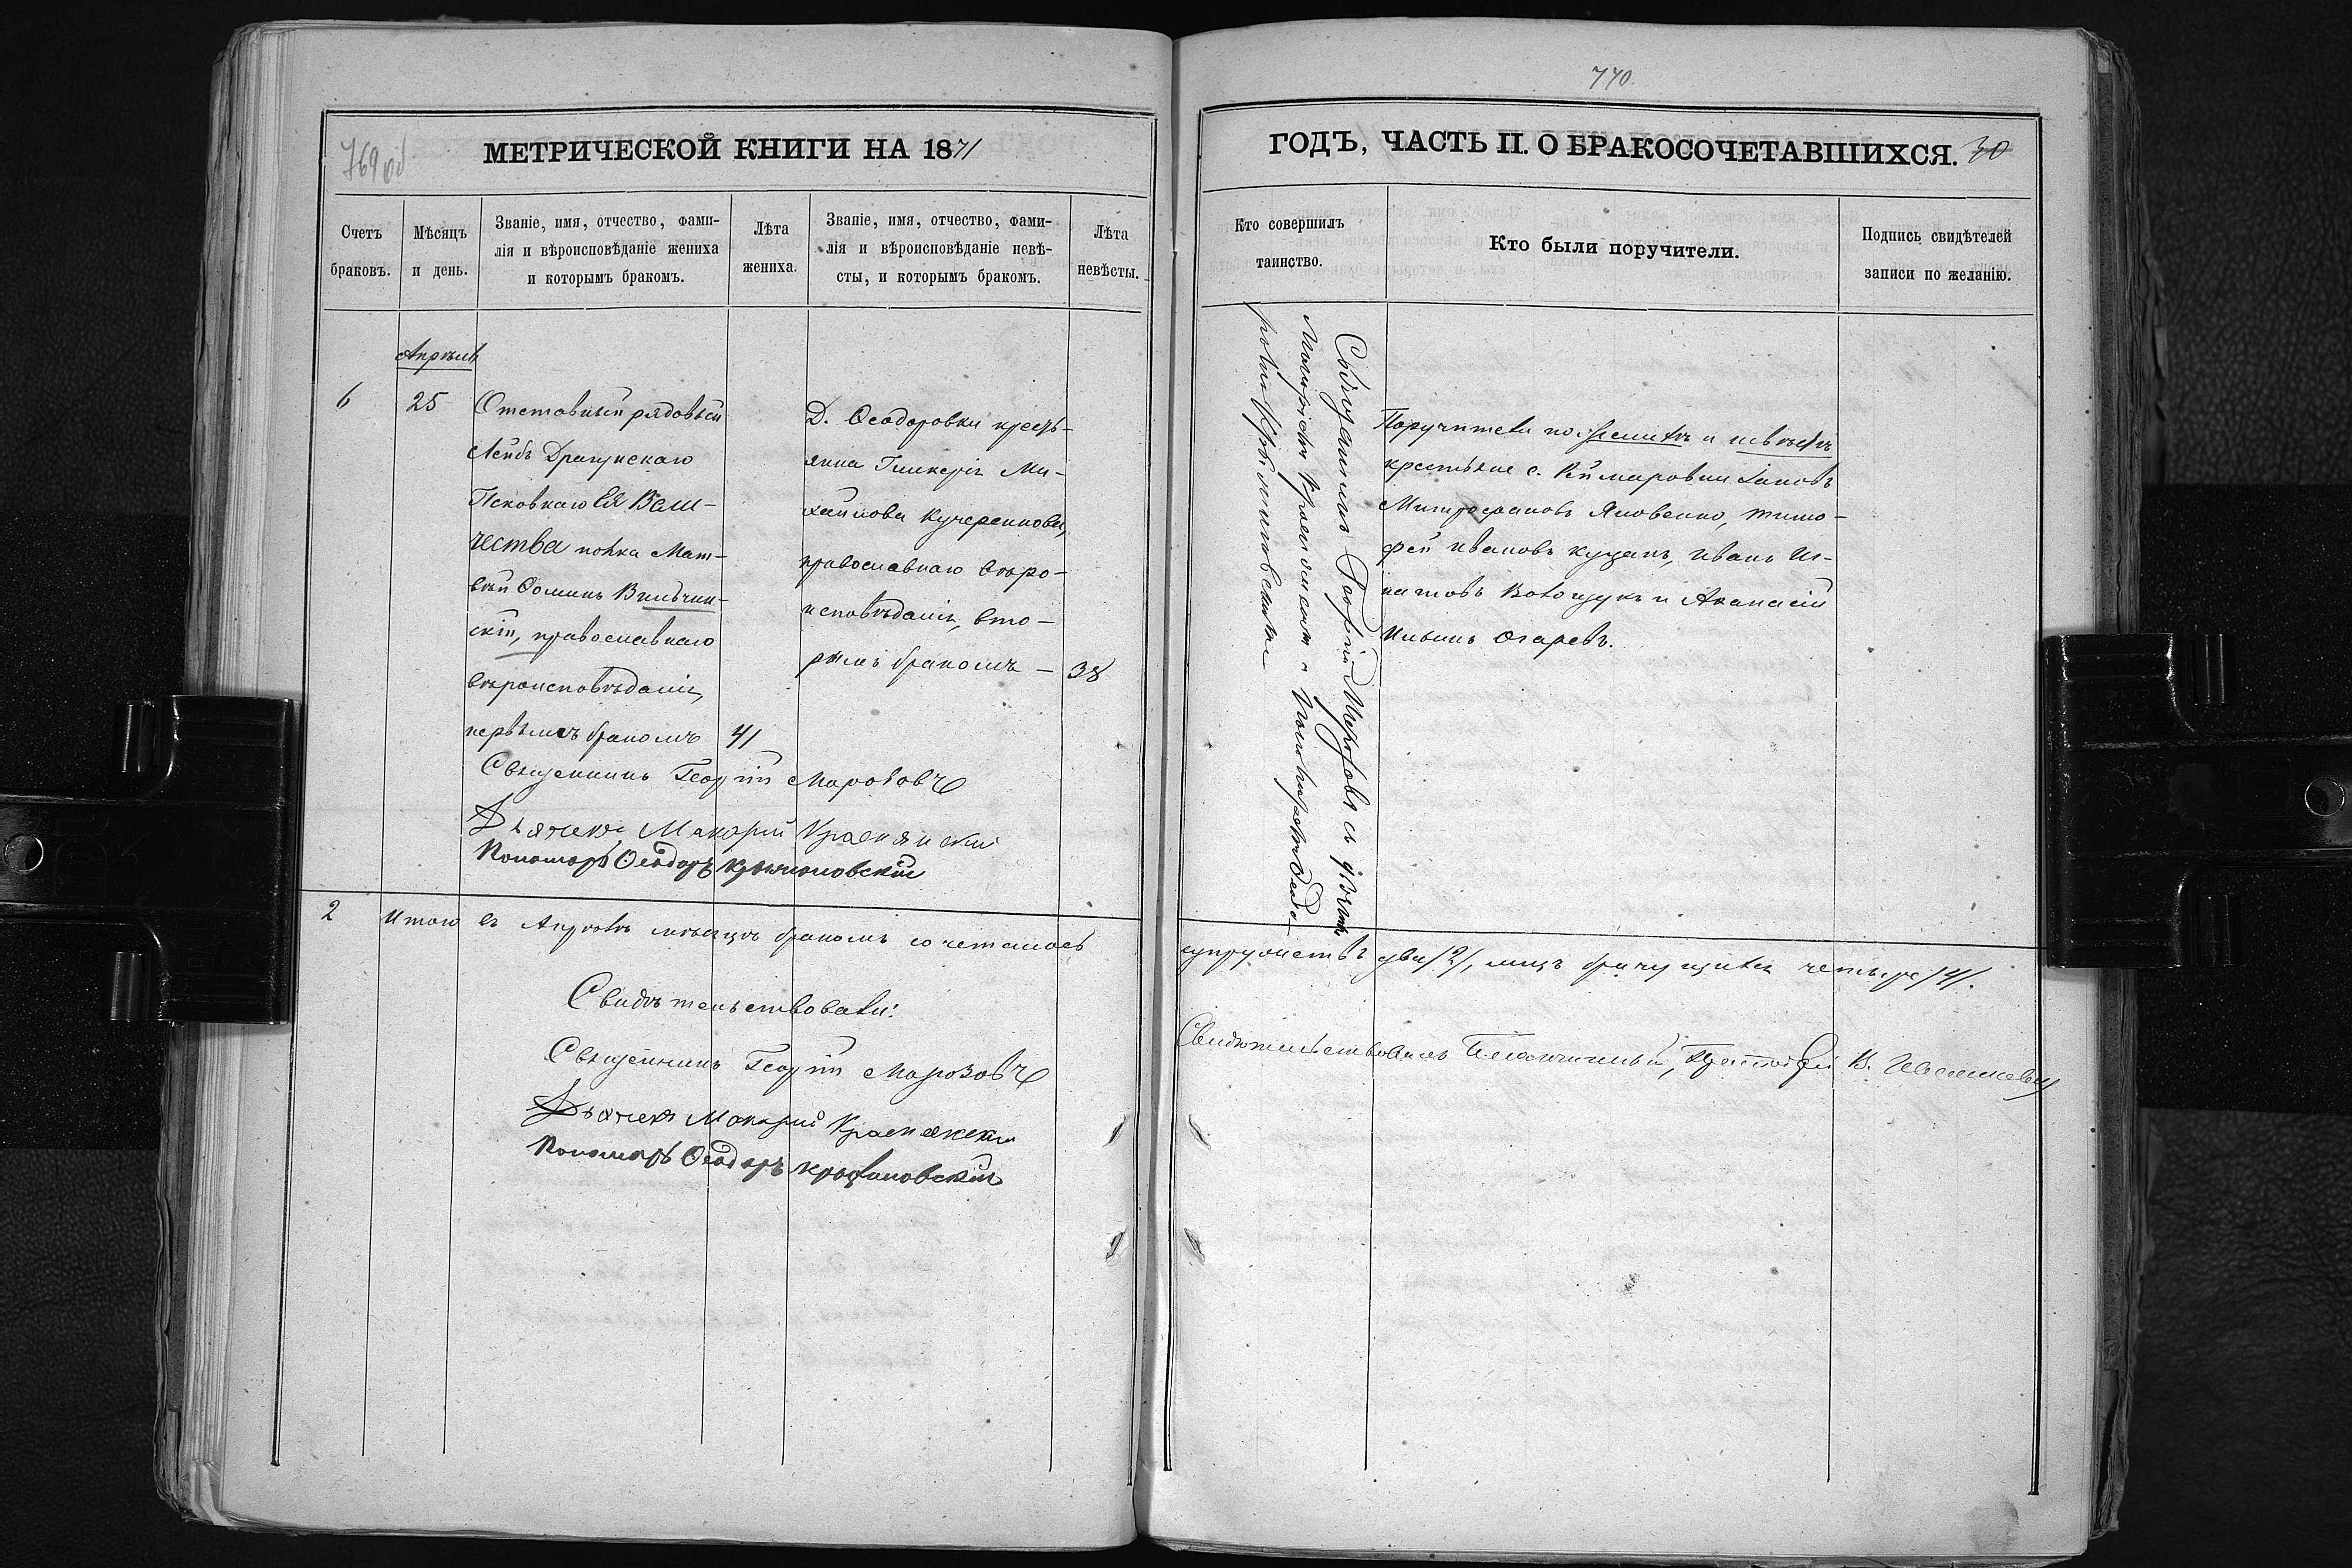 769 об
МЕТРИЧЕСКОЙ КНИГИ НА 1871
Счетъ
браковъ.
Мѣсяцъ
и день.
Званіе, имя, отчество, фами-
лія и вѣроисповѣданіе жениха
и которымъ бракомъ.
Лѣта
жениха.
Званіе, имя, отчество, фами-
лія и вѣроисповѣданіе невѣ-
сты, и которымъ бракомъ.
Лѣта
невѣсты.
Апрѣль
6
25
Отставный рядовый
Лейбъ Драгунскаго
Псковкаго Ея Вели-
чества полка Мат-
вѣй Ѳоминъ Вильчин-
скій, православнаго
вѣроисповѣданія,
первымъ бракомъ
41
Д. Ѳеодоровки кресть-
янка Гликерія Ми-
хайлова Кучеренкова,
православнаго вѣро-
исповѣданія, вто-
рымъ бракомъ —
38
Священникъ Георгій Морозовъ
Дьячекъ Макарій Краснянскій
Пономарь Ѳеодоръ Крыжановскій
2
Итого въ Апрѣлѣ мѣсяцѣ бракомъ сочеталось
Свидѣтельствовали:
Священникъ Георгій Морозовъ
Дьячекъ Макарій Краснянскій
Пономарь Ѳеодоръ Крыжановскій
770.
ГОДЪ, ЧАСТЬ II. О БРАКОСОЧЕТАВШИХСЯ. 30
Кто совершилъ
таинство.
Кто были поручители.
Подпись свидѣтелей
записи по желанію.
Священникъ Георгій Морозовъ съ дьячк.
Макаріемъ Краснянскимъ и Пономаремъ Ѳеодо-
ромъ Крыжановскимъ
Поручители по женихѣ и невѣстѣ
крестьяне с.
Митрофановъ Яковенко, Тимо-
фей Ивановъ Куцанъ, Иванъ Иг-
натовъ Волощукъ и Аѳанасій
Ильинъ Огаревъ.
супружествъ два /2/, лицъ брачущихся четыре /4/.
Свидѣтельствовалъ Благочинный, Протоіерей В.